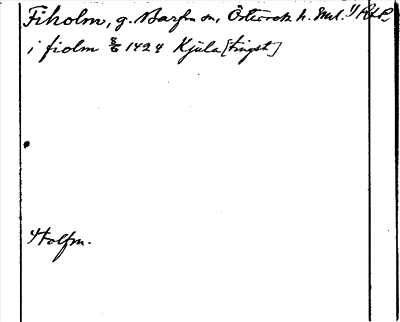 Fiholm, g. Barfva sn, Österrek h. Sml. RAP
i fiolm 8/6 1424 Kjula [tingst]
Holfm.